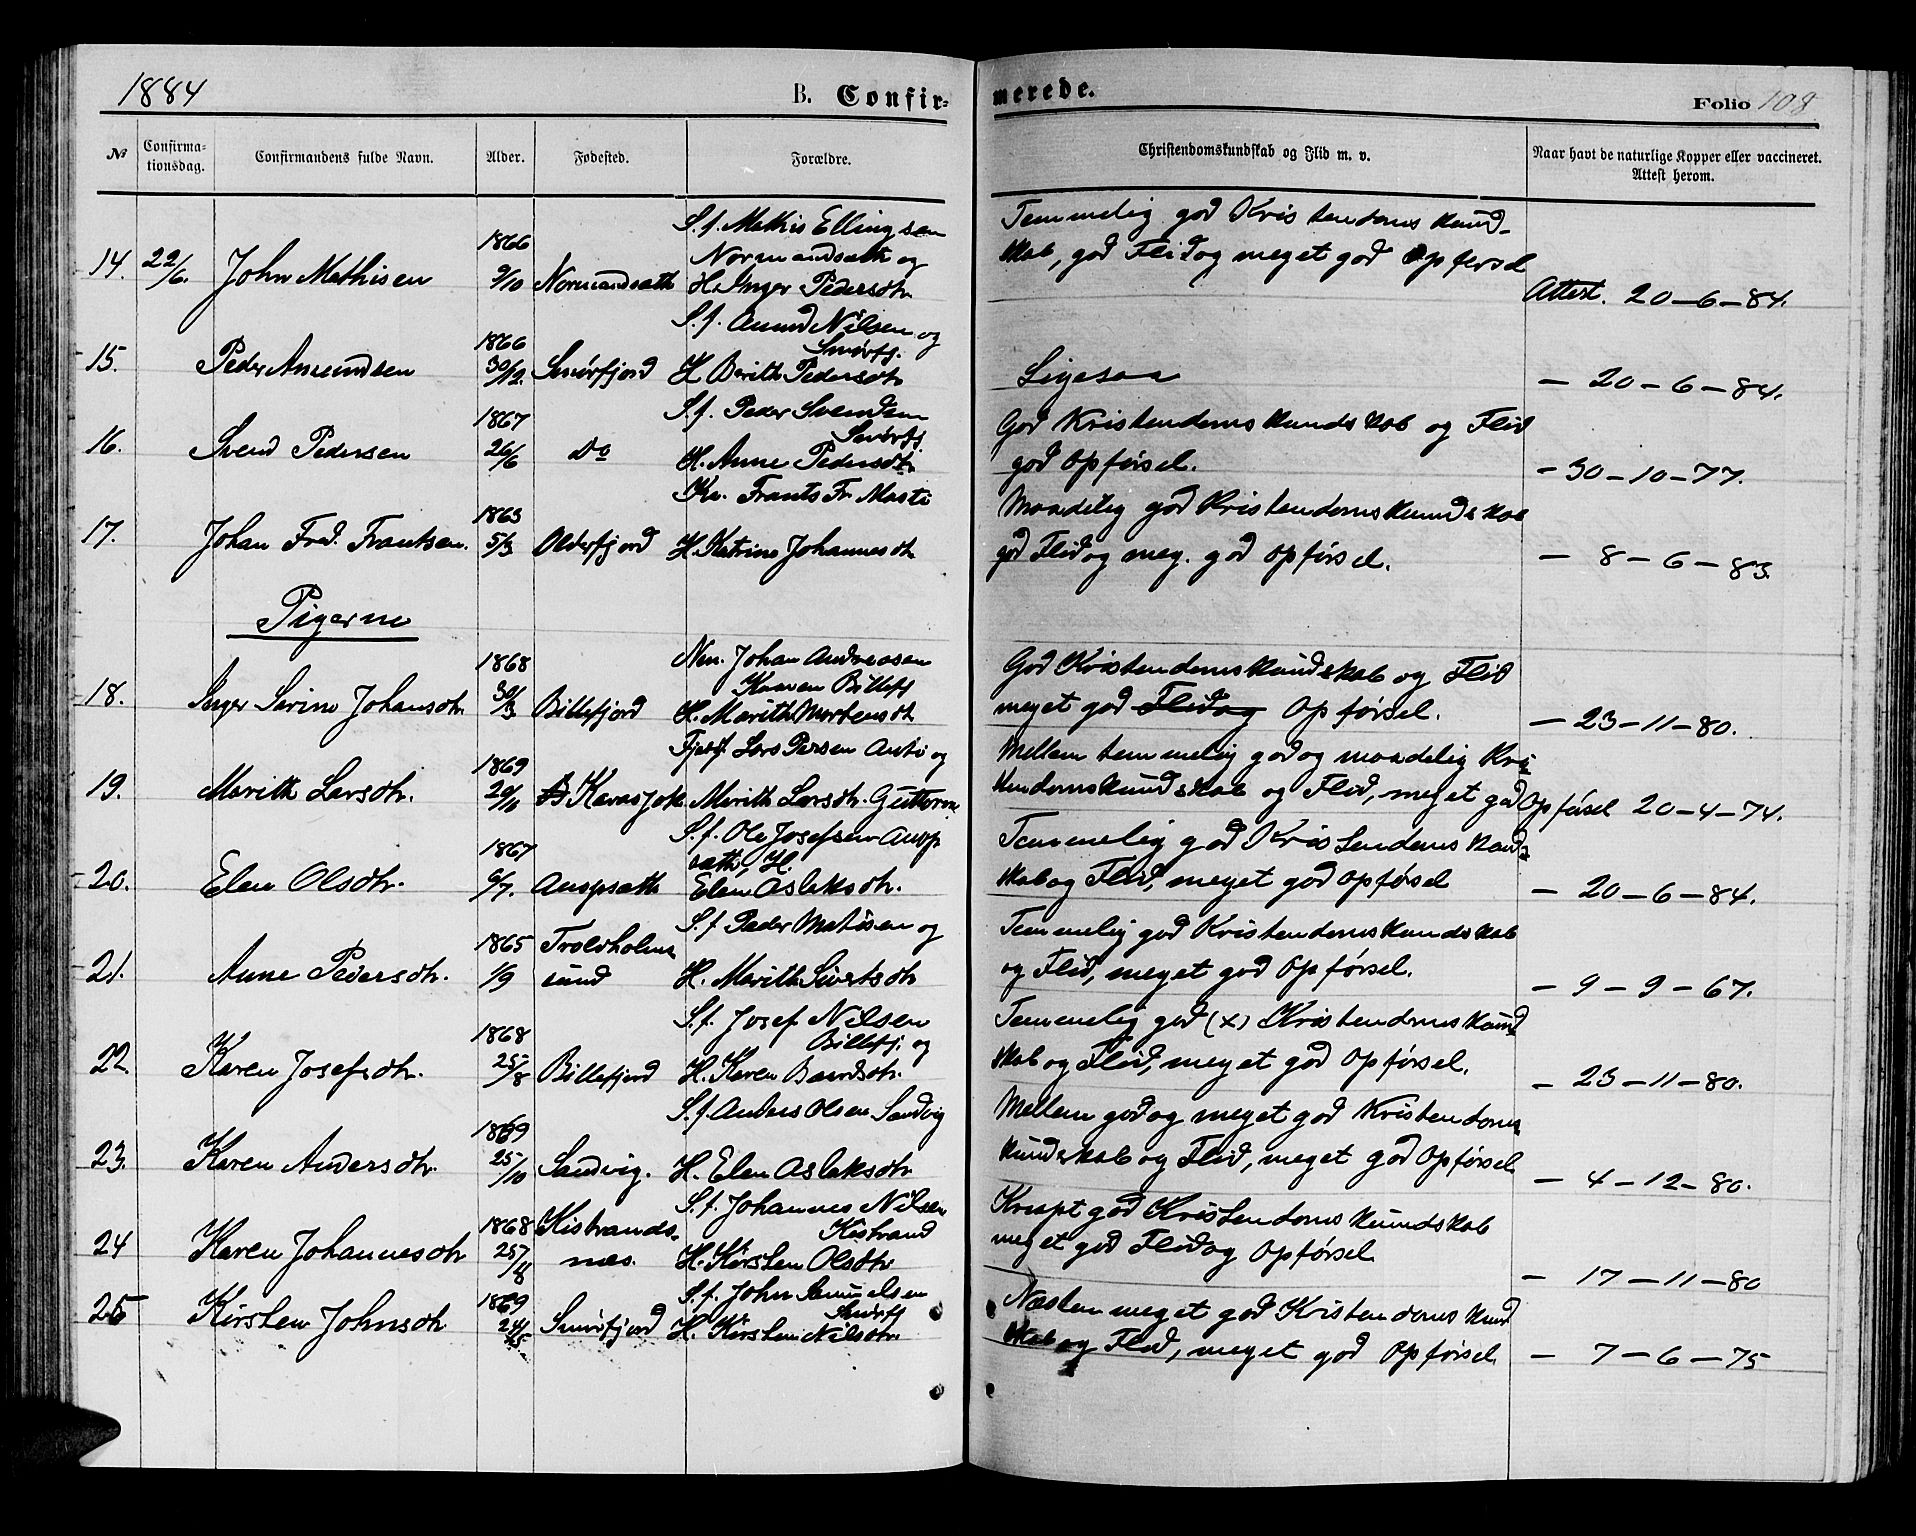 1884
B. Confir-
merede.
Folio 108
No
Confirma-
tionsdag.
Confirmandens fulde Navn.
Alder.
Fødested.
Forældre.
Christendomskundskab og Flid m. v.
Naar havt de naturlige Kopper eller vaccineret.
Attest herom.
14. 22/6. John Mathisen 1866 9/10 Normandsæth
S.f. Mathis Ellingsen
Normandsæth og
H. Inger Pedersdtr.
Temmelig god Kristendomskund-
skab, god Flid og meget god Opførsel
Attest. 20-6-84.
15. Peder Amundsen 1866 30/12. Smørfjord
S.f. Amund Nilsen og
Smørfj.
H Berith Pedersdtr
Ligesaa
- 20-6-84.
16. Svend Pedersen 1867 26/6 Do
S.f. Peder Svendsen
Smørfj.
H. Anne Pedersdtr
God Kristendomskundskab og Flid
god Opførsel.
- 30-10-77.
17. Johan Fred. Frantsen. 1865 5/3 Olderfjord
Kv. Frants Fr. Masti
H. Katrine Johannesdtr
Maadelig god Kristendomskundskab
god Flid og meg. god Opførsel.
- 8-6-83.
Pigerne
18. Inger Serine Johansdtr. 1868 30/3 Billefjord
Nm. Johan Andreasen
Kaaven Billefj
H. Marith Mortensdtr
God Kristendomskundskab og Flid
meget god Flid og Opførsel.
- 23-11-80.
19. Marith Larsdtr. 1869 20/11 Karasjok
Fjeldf. Lars Persen Anti og
Marith Larsdtr. Guttorm
Mellem temmelig god og maadelig Kri-
stendomskundskab og Flid, meget god Opførsel 20-4-74.
20. Elen Olsdtr. 1867 6/7. Auspsæth
S.f. Ole Josefsen Ausp
sæth, H.
Elen Aslaksdtr.
Temmelig god Kristendomskund-
skab og Flid, meget god Opførsel
- 20-6-84.
21. Anne Pedersdtr. 1865 1/9 Troldholm
sund
S.f Peder Matisen og
H. Marith Sivertsdtr
Temmelig god Kristendomskundskab
og Flid, meget god Opførsel.
- 9-9-67.
22. Karen Josefsdtr. 1868 25/8 Billefjord
S.f. Josef Nilsen
Billefj. og
H. Karen Baardsdtr.
Temmelig god (x) Kristendomskund
skab og Flid, meget god Opførsel.
- 23-11-80.
23. Karen Andersdtr. 1869 25/10 Sandvig.
S.f Anders Olsen Sandvig
H. Elen Aslaksdtr
Mellem god og meget god Kristendoms
kundskab og Flid, meget god Opførsel
- 4-12-80.
24 Karen Johannesdtr 1868 25/8 Kistrands-
næs.
S.f. Johannes Nilsen
Kistrand
H. Kirsten Olsdtr.
Knapt god Kristendomskundskab
meget god Flid og Opførsel
- 17-11-80
25 Kirsten Johnsdtr 1869 Smørfjord
S.f. John Samuelsen
Smørfj
H. Kirsten Nilsdtr.
Næsten meget god Kristendomskund
skab og Flid, meget god Opførsel
- 7-6-75